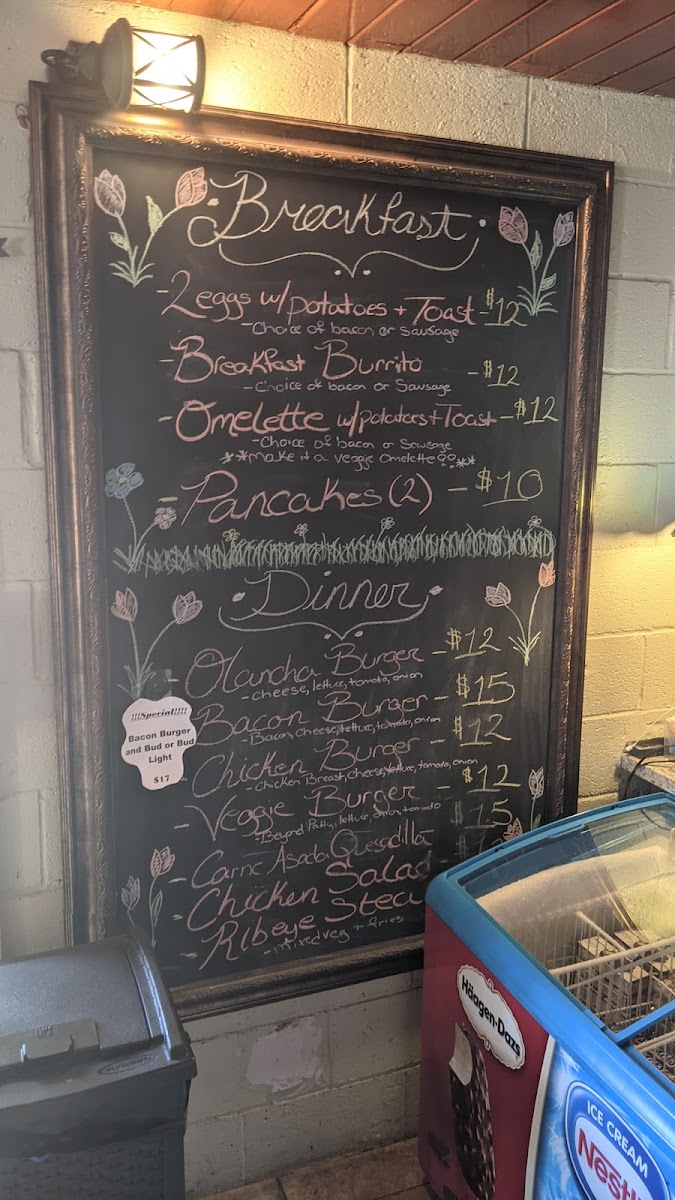 Breakfast
- 2 eggs w/ potatoes + Toast - $12
- Choice of bacon or sausage
- Breakfast Burrito - $12
- Choice of bacon or Sausage
- Omelette w/ potatoes + Toast - $12
- Choice of bacon or Sausage
**make it a veggie Omelette!!**
- Pancakes (2) - $10
Dinner
- Olancha Burger - $12
- cheese, lettuce, tomato, onion
- Bacon Burger - $15
- Bacon, cheese, lettuce, tomato, onion
- Chicken Burger - $12
- Chicken Breast, cheese, lettuce, tomato, onion
- Veggie Burger - $12
- Beyond Patty, lettuce, onion, tomato
- Carne Asada Quesadilla - $15
- Chicken Salad
- Ribeye Stea
- mixed veg + fries
!!!Special!!!!
Bacon Burger
and Bud or Bud
Light
$17
Häagen-Dazs
ICE CREAM
Nestl